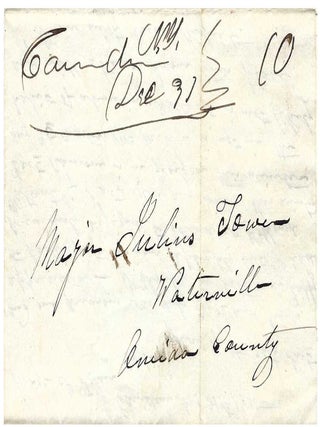 Camden NY, 10
Dec 31
Major Julius Tower
Waterville
Oneida County